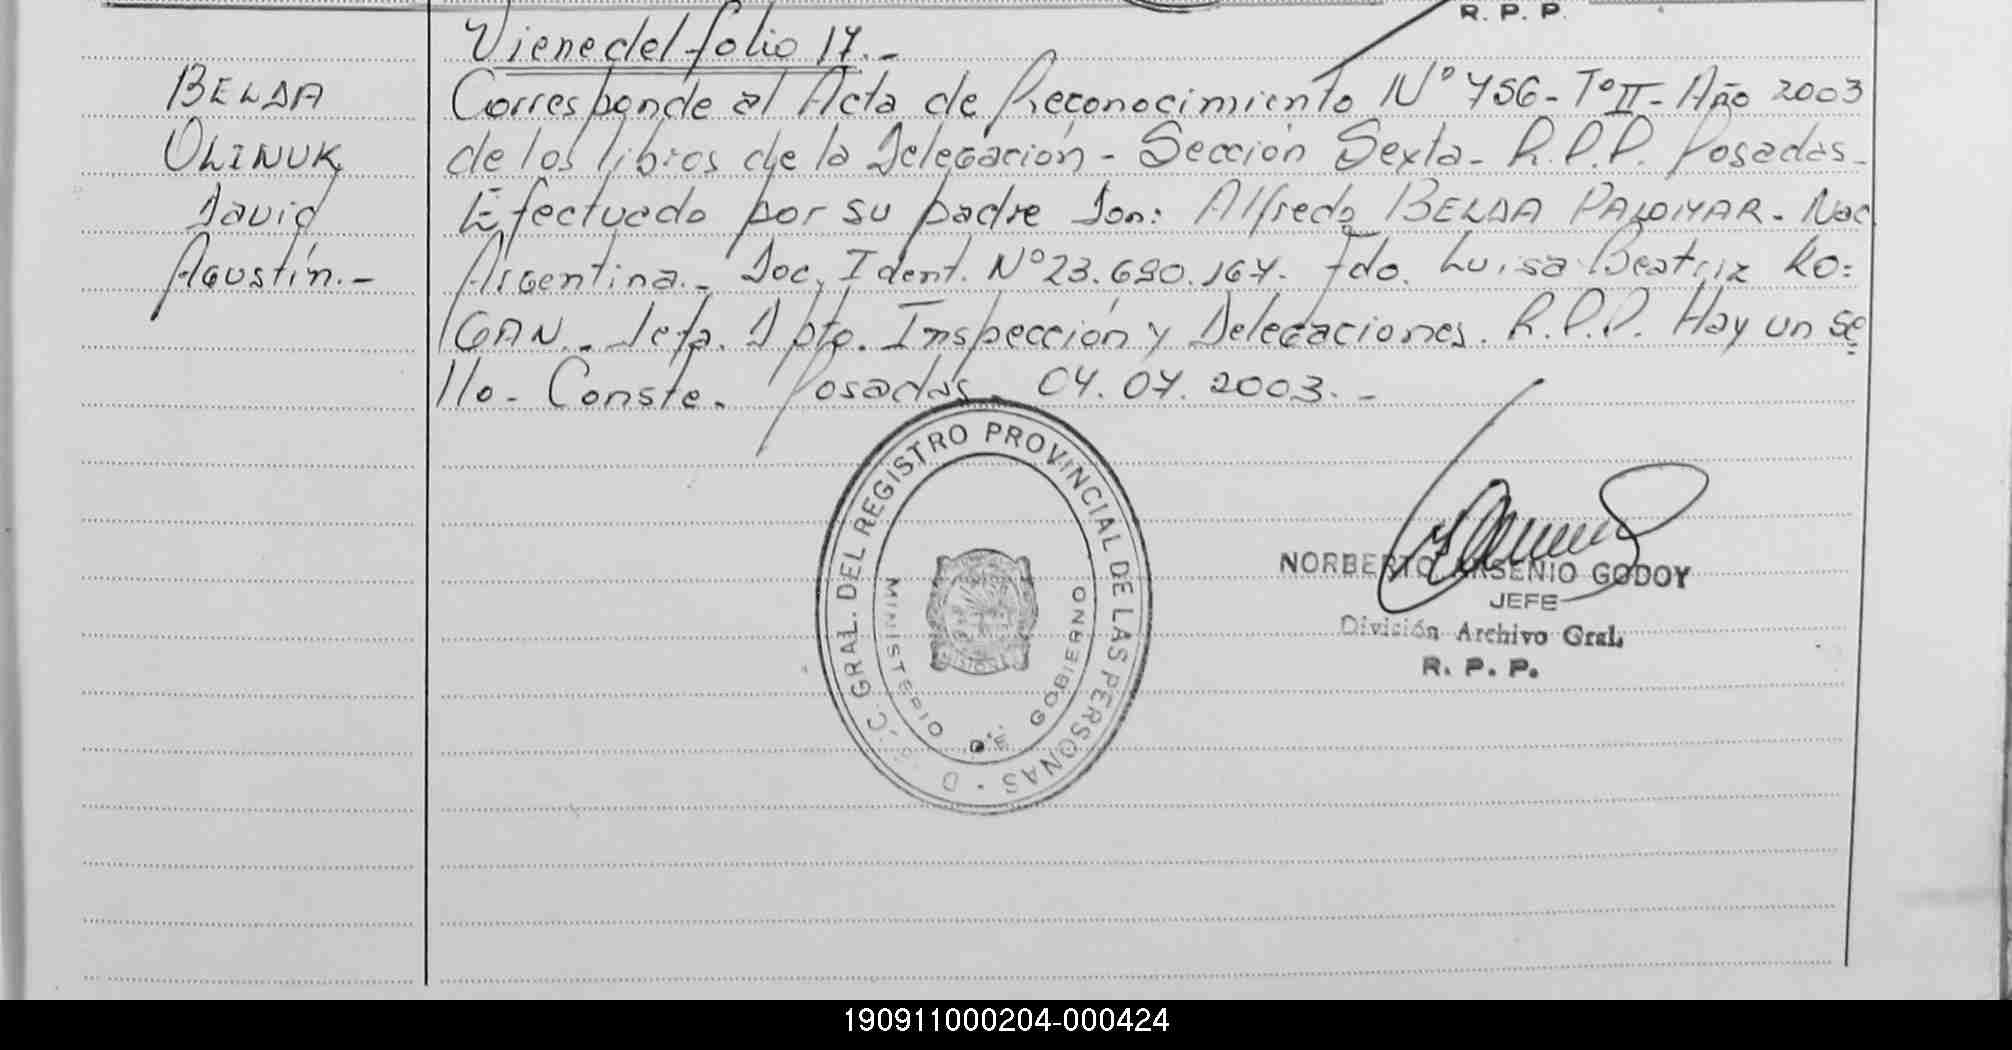 R. P. P.
Viene del folio 17.-
BELDA
OLINUK
David
Agustín.-
Corresponde al Acta de Reconocimiento N° 756- T° II- Año 2003
de los libros de la Delegación - Sección Sexta- R.P.P. Posadas-
Efectuado por su padre Don: Alfredo BELDA PALOMAR- Nac
Argentina.- Doc. Ident. N° 23.690.167. Fdo. Luisa Beatriz RO=
GAN.- Jefa. Dpto. Inspección y Delegaciones. R.P.P. Hay un se
llo- Conste. Posadas. 04.07.2003.-
D.G.C. GRAL. DEL REGISTRO PROVINCIAL DE LAS PERSONAS -
MINISTERIO DE GOBIERNO
MISIONES
NORBERTO ARSENIO GODOY
JEFE
División Archivo Gral.
R. P. P.
190911000204-000424